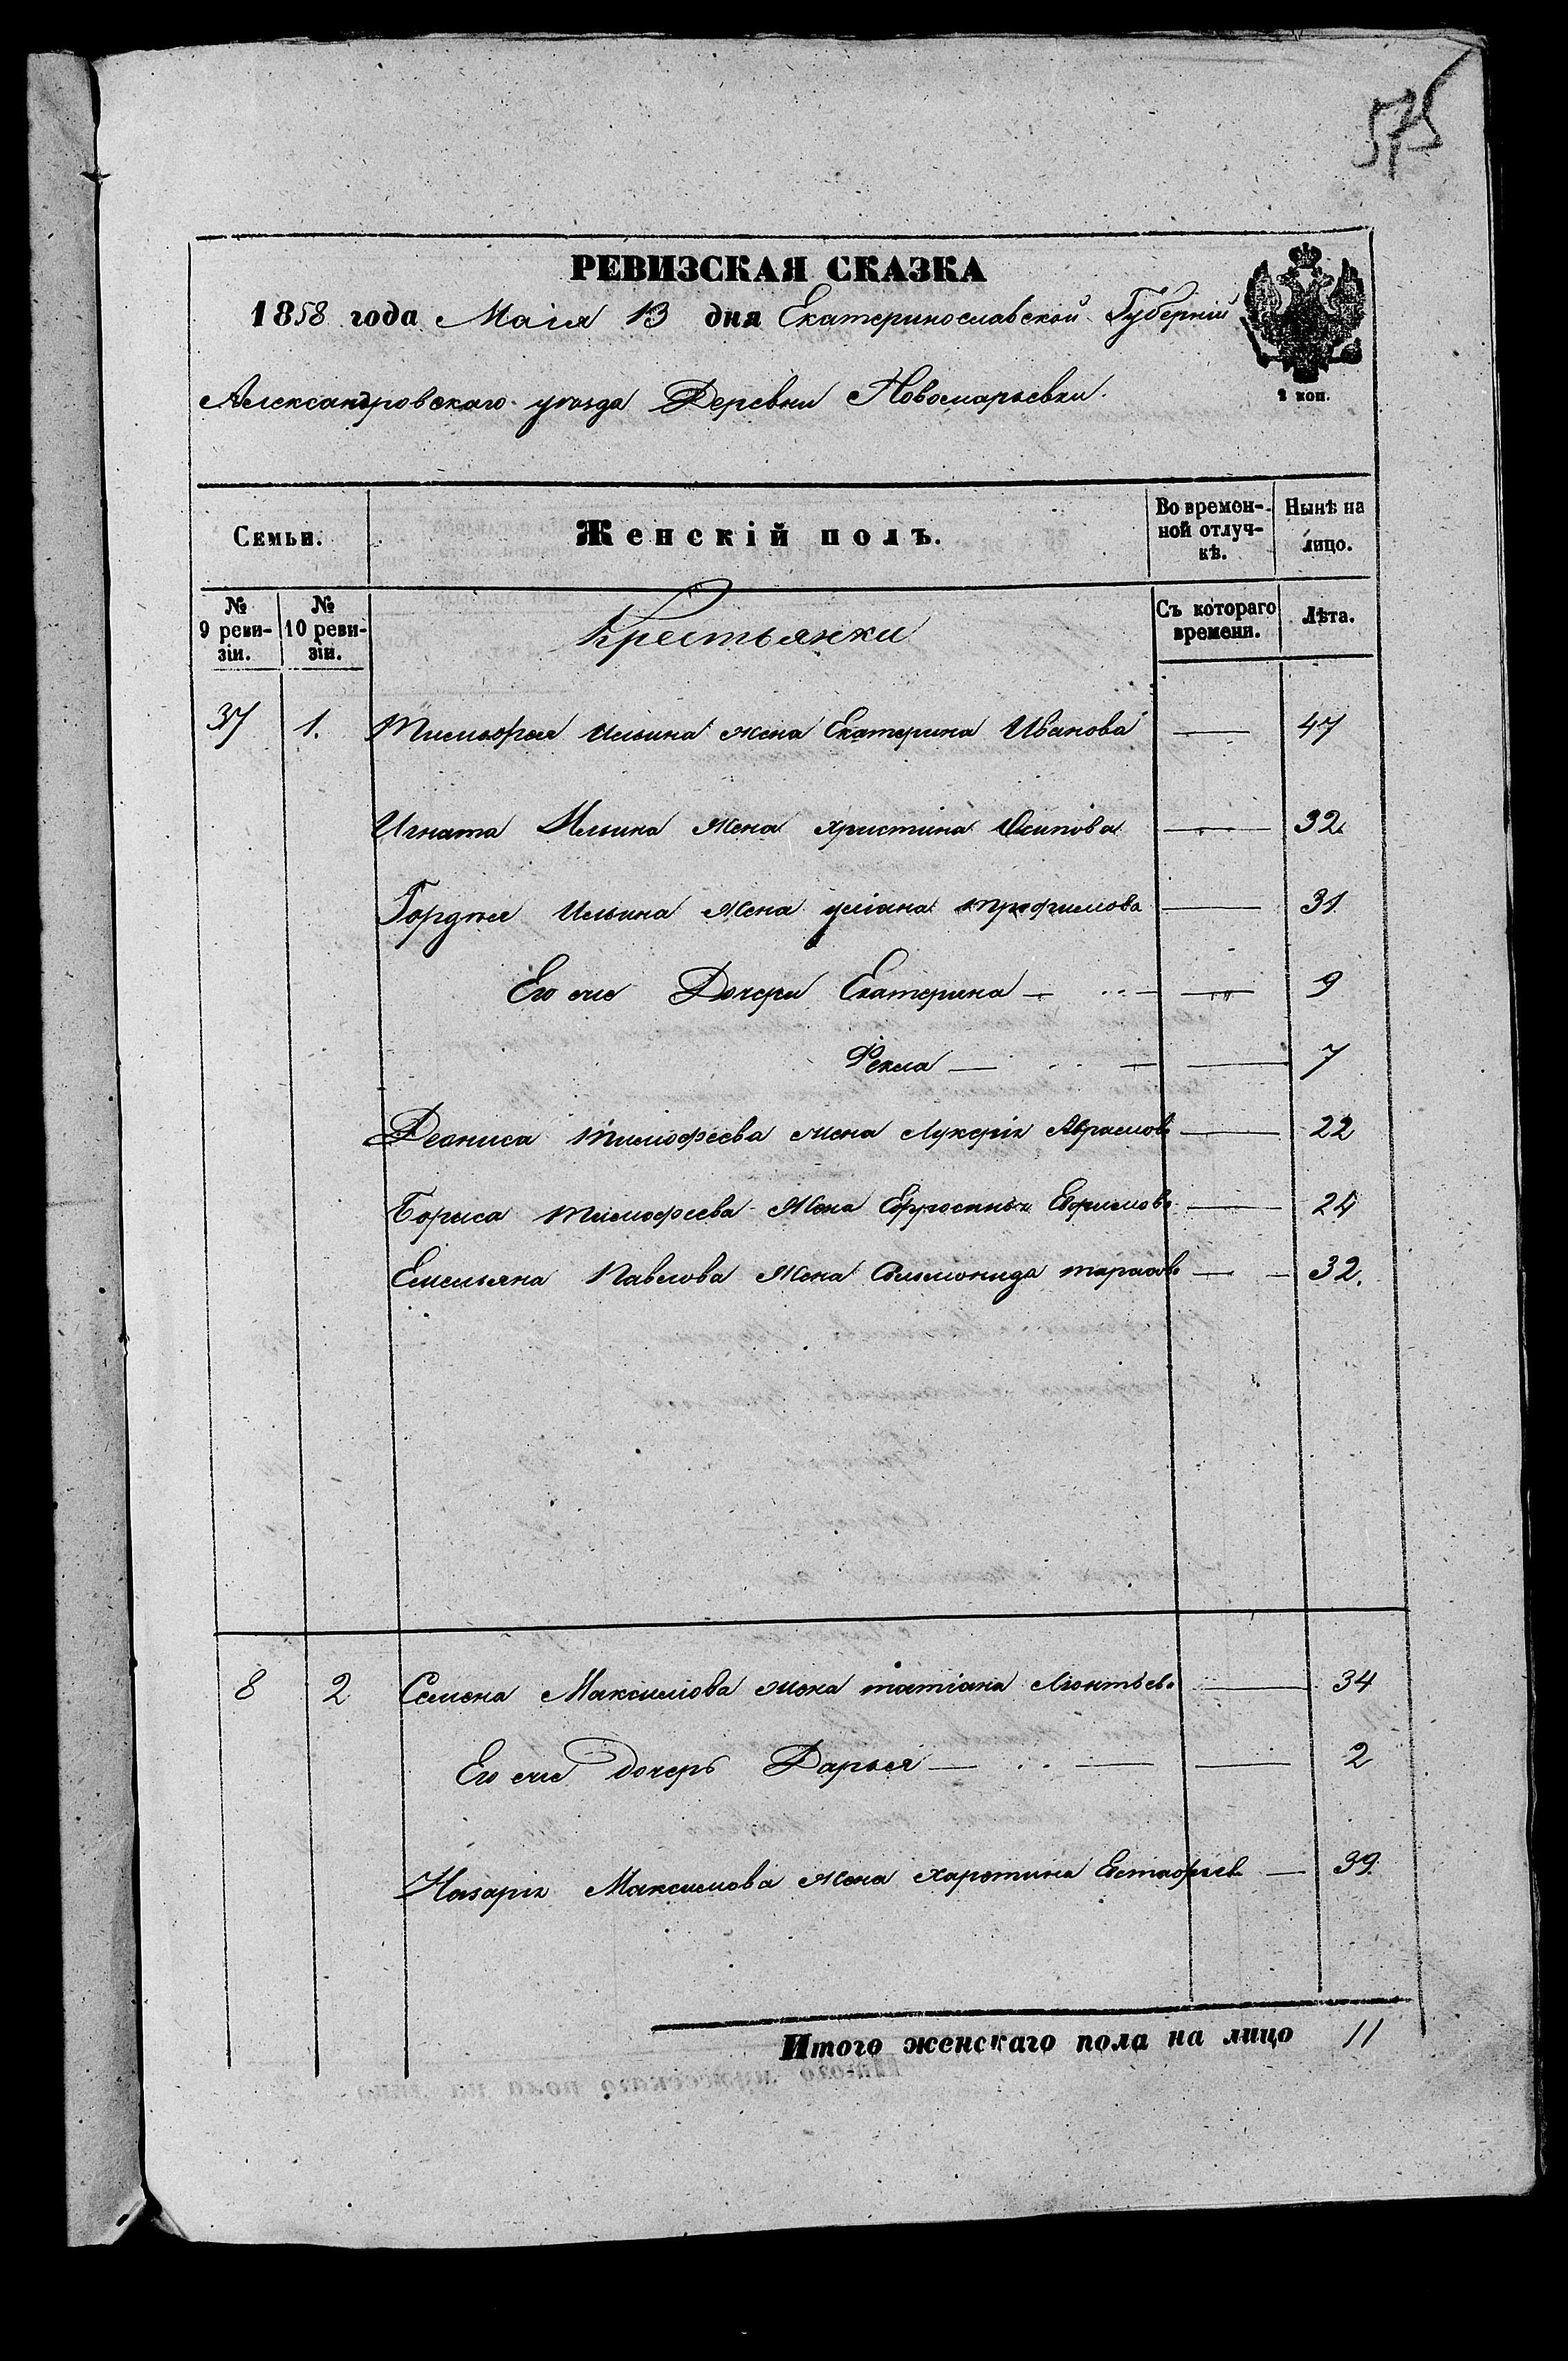 575
РЕВИЗСКАЯ СКАЗКА
1858 года Маія 13 дня Екатеринославской Губерніи
Александровскаго уѣзда Деревни Новомарьевки.
2 коп.
Семьи. Женскій полъ. Во времен- Нынѣ на
ной отлуч- лицо.
кѣ.
№ № Крестьянки Съ котораго Лѣта.
9 реви- 10 реви- времени.
зіи. зіи.
37 1. Тимофея Ильина жена Екатерина Иванова — 47
Игната Ильина жена христина Осипова — 32
Гордѣя Ильина жена уліана трофимова — 31
Его же Дочери Екатерина — 9
Фекла — 7
Деониса тимофеева жена Лукерія Абрамов — 22
Бориса тимофеева жена Ефросинья Ефимов — 24
Емельяна Павлова жена тарасов — 32.
8 2 Семена Максимова жена татіана Леонтьев — 34
Его же дочерь Дарья — 2
Назарія Максимова жена харетина Естафьев — 39.
Итого женскаго пола на лицо 11